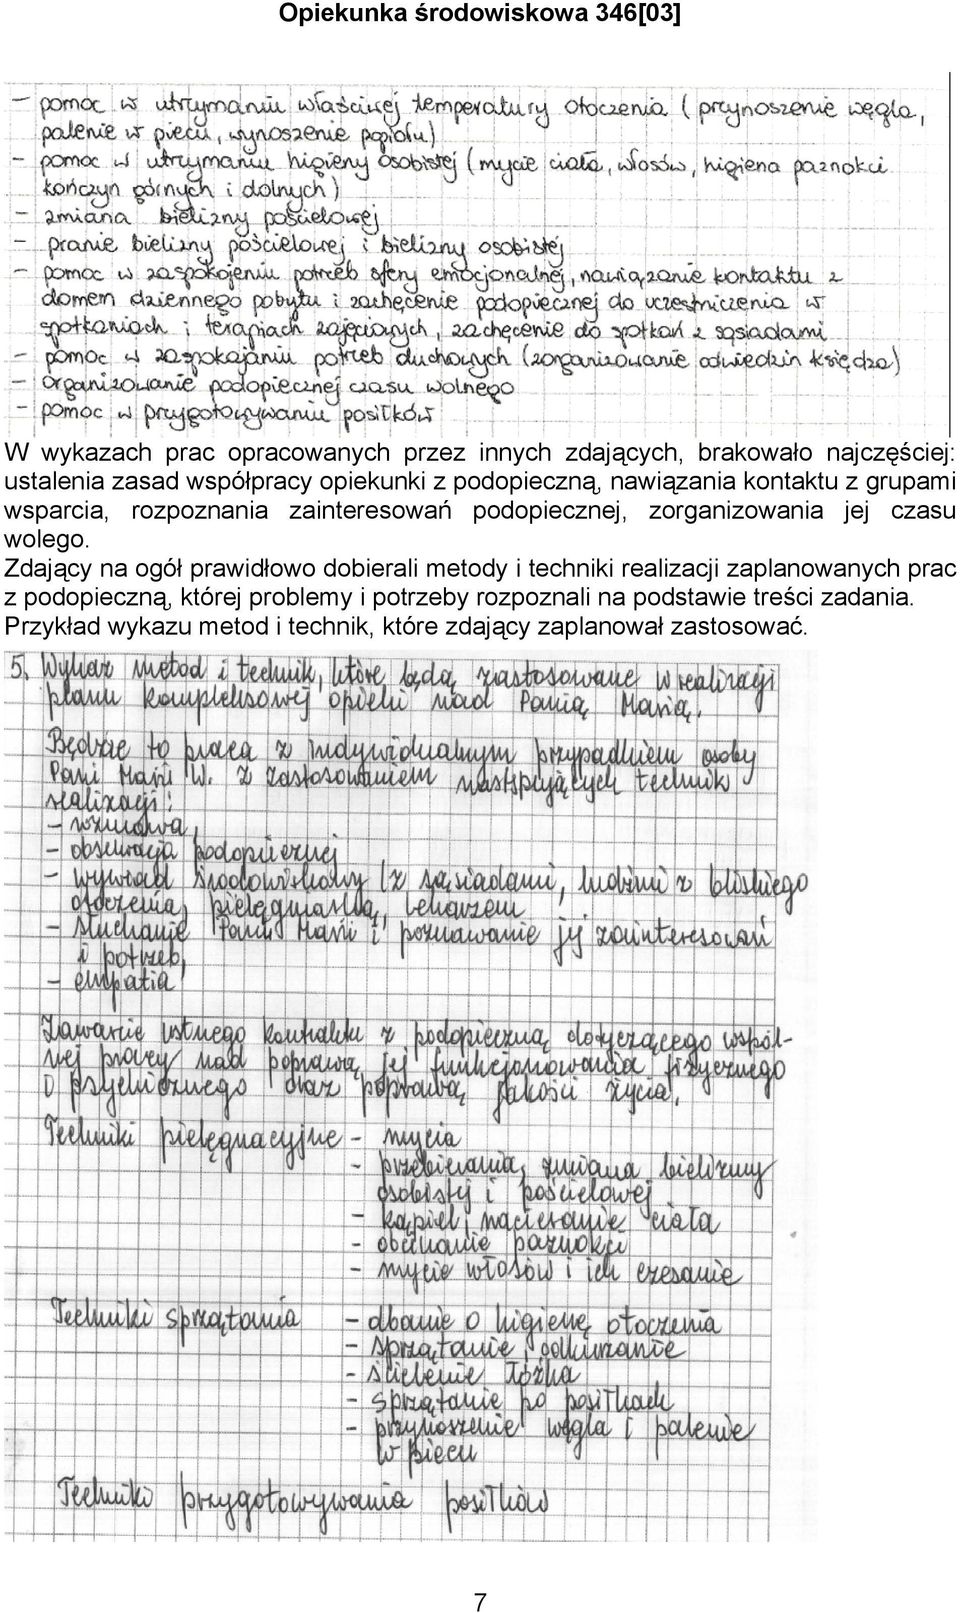 Opiekunka środowiskowa 346[03]
- pomoc w utrzymaniu właściwej temperatury otoczenia (przynoszenie węgla,
palenie w piecu, wynoszenie popiołu)
- pomoc w utrzymaniu higieny osobistej (mycie ciała, włosów, higiena paznokci
kończyn górnych i dolnych)
- zmiana bielizny pościelowej
- pranie bielizny pościelowej i bielizny osobistej
- pomoc w zaspokojeniu potrzeb sfery emocjonalnej, nawiązanie kontaktu z
domem dziennego pobytu i zachęcenie podopiecznej do uczestniczenia w
spotkaniach i terapiach zajęciowych, zachęcenie do spotkań z sąsiadami
- pomoc w zaspokajaniu potrzeb duchowych (zorganizowanie odwiedzin księdza)
- organizowanie podopiecznej czasu wolnego
- pomoc w przygotowywaniu posiłków
W wykazach prac opracowanych przez innych zdających, brakowało najczęściej:
ustalenia zasad współpracy opiekunki z podopieczną, nawiązania kontaktu z grupami
wsparcia, rozpoznania zainteresowań podopiecznej, zorganizowania jej czasu
wolego.
Zdający na ogół prawidłowo dobierali metody i techniki realizacji zaplanowanych prac
z podopieczną, której problemy i potrzeby rozpoznali na podstawie treści zadania.
Przykład wykazu metod i technik, które zdający zaplanował zastosować.
5. Wykaz metod i technik, które będą zastosowane w realizacji
planu kompleksowej opieki nad Panią Marią.
Będzie to praca z indywidualnym przypadkiem osoby
Pani Marii W. z zastosowaniem następujących technik
realizacji:
- rozmowa,
- obserwacja podopiecznej
- wywiad środowiskowy (z sąsiadami, ludźmi z bliskiego
otoczenia, pielęgniarką, lekarzem
- słuchanie Pani Marii i poznawanie jej zainteresowań
i potrzeb,
- empatia
Zawarcie ustnego kontraktu z podopieczną dotyczącego wspól-
nej pracy nad poprawą jej funkcjonowania fizycznego
i psychicznego oraz poprawą jakości życia.
Techniki pielęgnacyjne - mycia
- przebierania, zmiana bielizny
osobistej i pościelowej
- kąpiel i nacieranie ciała
- obcinanie paznokci
- mycie włosów i ich czesanie
Techniki sprzątania - dbanie o higienę otoczenia
- sprzątanie, odkurzanie
- ścielenie łóżka
- sprzątanie po posiłkach
- przynoszenie węgla i palenie
w piecu
Techniki przygotowywania posiłków
7